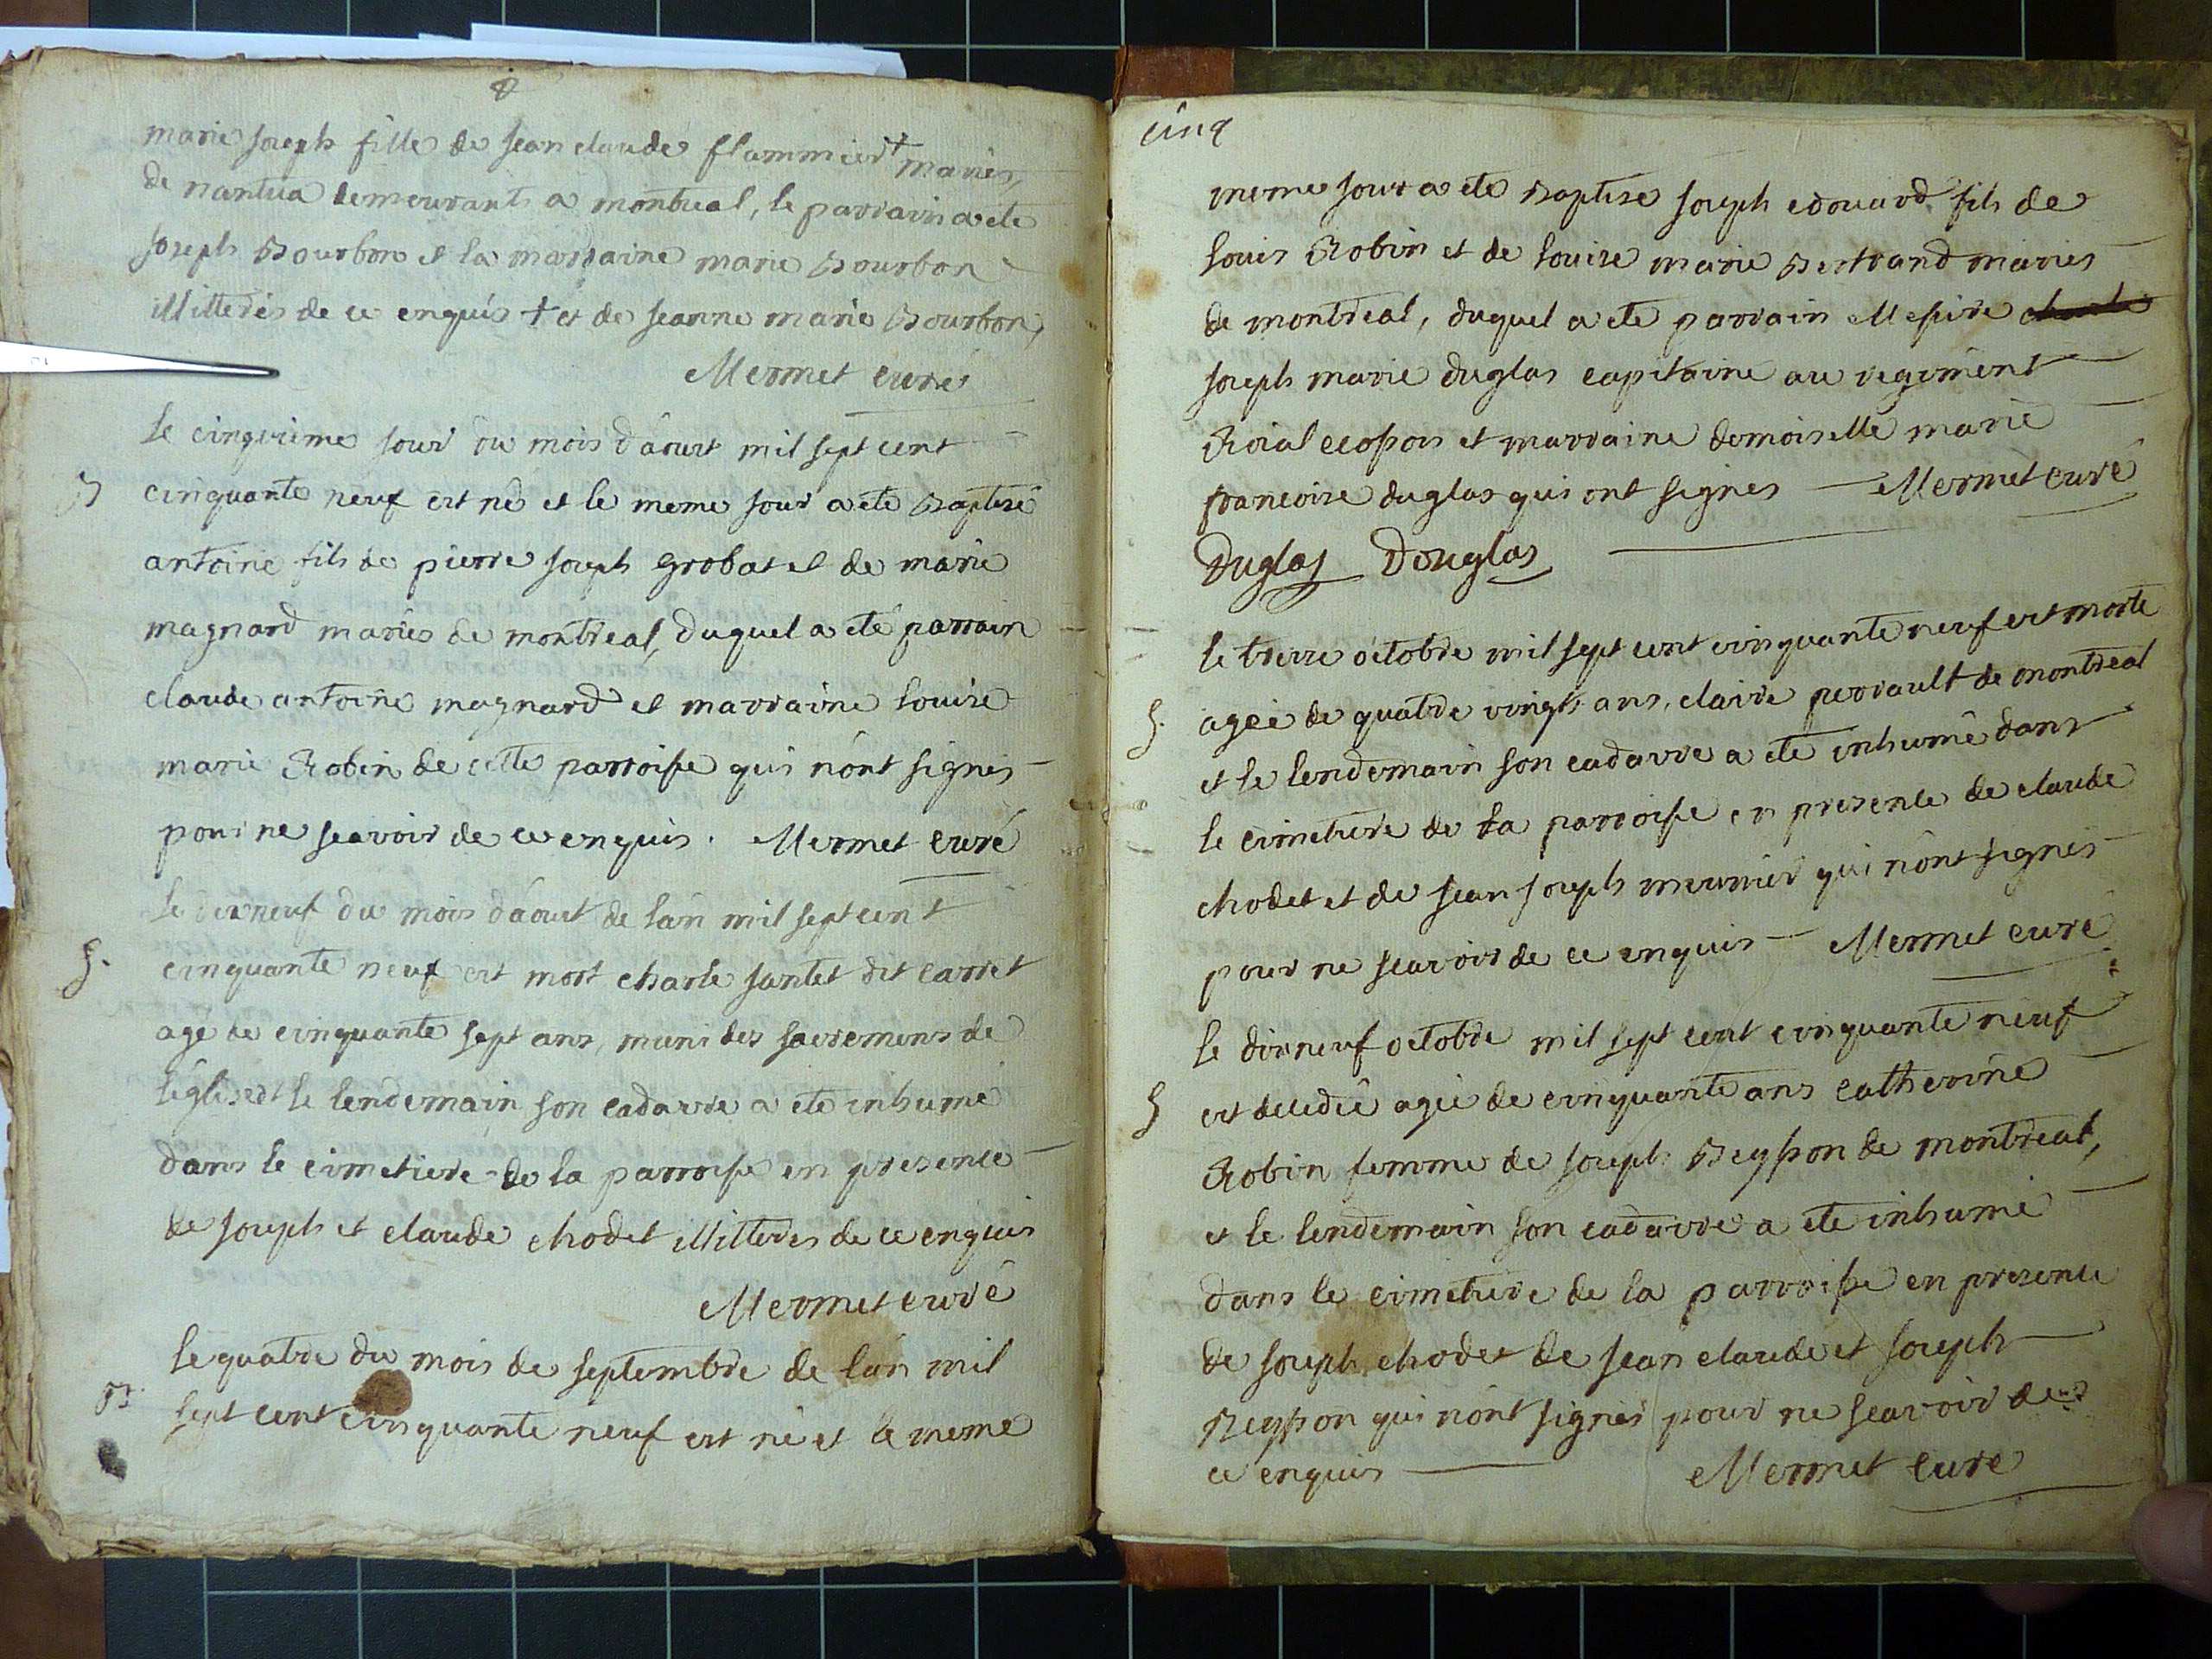 marie joseph fille de jean claude flammier + mariés,
de nantua demeurants a montreal, le parrain a ete
joseph Bourbon et la marraine marie Bourbon
illitterés de ce enquis + et de jeanne marie Bourbon,
Mermet curé
le cinquieme jour du mois d'aoust mil sept cent
B cinquante neuf est né et le meme jour a ete Baptisé
antoine fils de pierre joseph Grobas et de marie
magnard mariés de montreal, duquel a eté parrain
claude antoine magnard et marraine louise
marie Robin de cette parroisse qui n'ont signés
pour ne scavoir de ce enquis. Mermet curé
le dixneuf du mois d'aout de l'an mil sept cent
S. cinquante neuf est mort charle jantet dit carret
agé de cinquante sept ans, muni des sacremens de
l'église et le lendemain son cadavre a ete inhumé
dans le cimetiere de la parroisse en presence
de joseph et claude chodet illitterés de ce enquis
Mermet curé
le quatre du mois de septembre de l'an mil
B. sept cent cinquante neuf est né et le meme
cinq
meme jour a eté Baptisé joseph edouard fils de
louis Robin et de louise marie Bertrand mariés
de montreal, duquel a ete parrain Messire
joseph marie duglas capitaine au regiment
Roial ecossois et marraine demoiselle marie
francoise duglas qui ont signés Mermet curé
Duglas Douglas
le treize octobre mil sept cent cinquante neuf est morte
S. agée de quatre vingts ans, claire perrault de montreal
et le lendemain son cadavre a ete inhumé dans
le cimetiere de la parroisse en presence de claude
chodet et de jean joseph meunier qui n'ont signés
pour ne scavoir de ce enquis Mermet curé
le dixneuf octobre mil sept cent cinquante neuf
S est decedée agée de cinquante ans catherine
Robin femme de joseph Beysson de montreal,
et le lendemain son cadavre a ete inhumé
dans le cimetiere de la parroisse en presence
de joseph chodet de jean claude et joseph
Beysson qui n'ont signés pour ne scavoir de
ce enquis Mermet curé